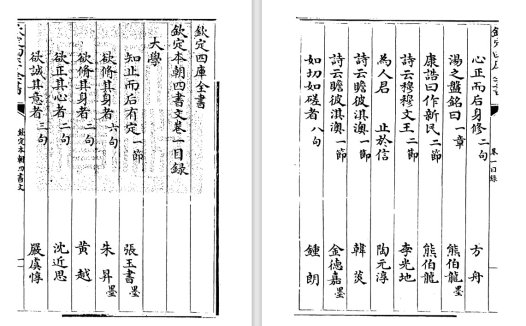 欽定四庫全書
欽定本朝四書文卷一目録
大學
知止而后有定一節 張玉書墨
欲脩其身者六句 朱昇墨
欲脩其身者二句 黄越
欲正其心者二句 沈近思
欲誠其意者三句 嚴虞惇
欽定本朝四書文
卷一目録
心正而后身修二句 方舟
湯之盤銘曰一章 熊伯龍墨
康誥曰作新民二節 熊伯龍
詩云穆穆文王二節 李光地
為人君 止於信 陶元淳
詩云瞻彼淇澳一節 韓菼
詩云瞻彼淇澳一節 金德嘉墨
如切如磋者八句 鍾朗